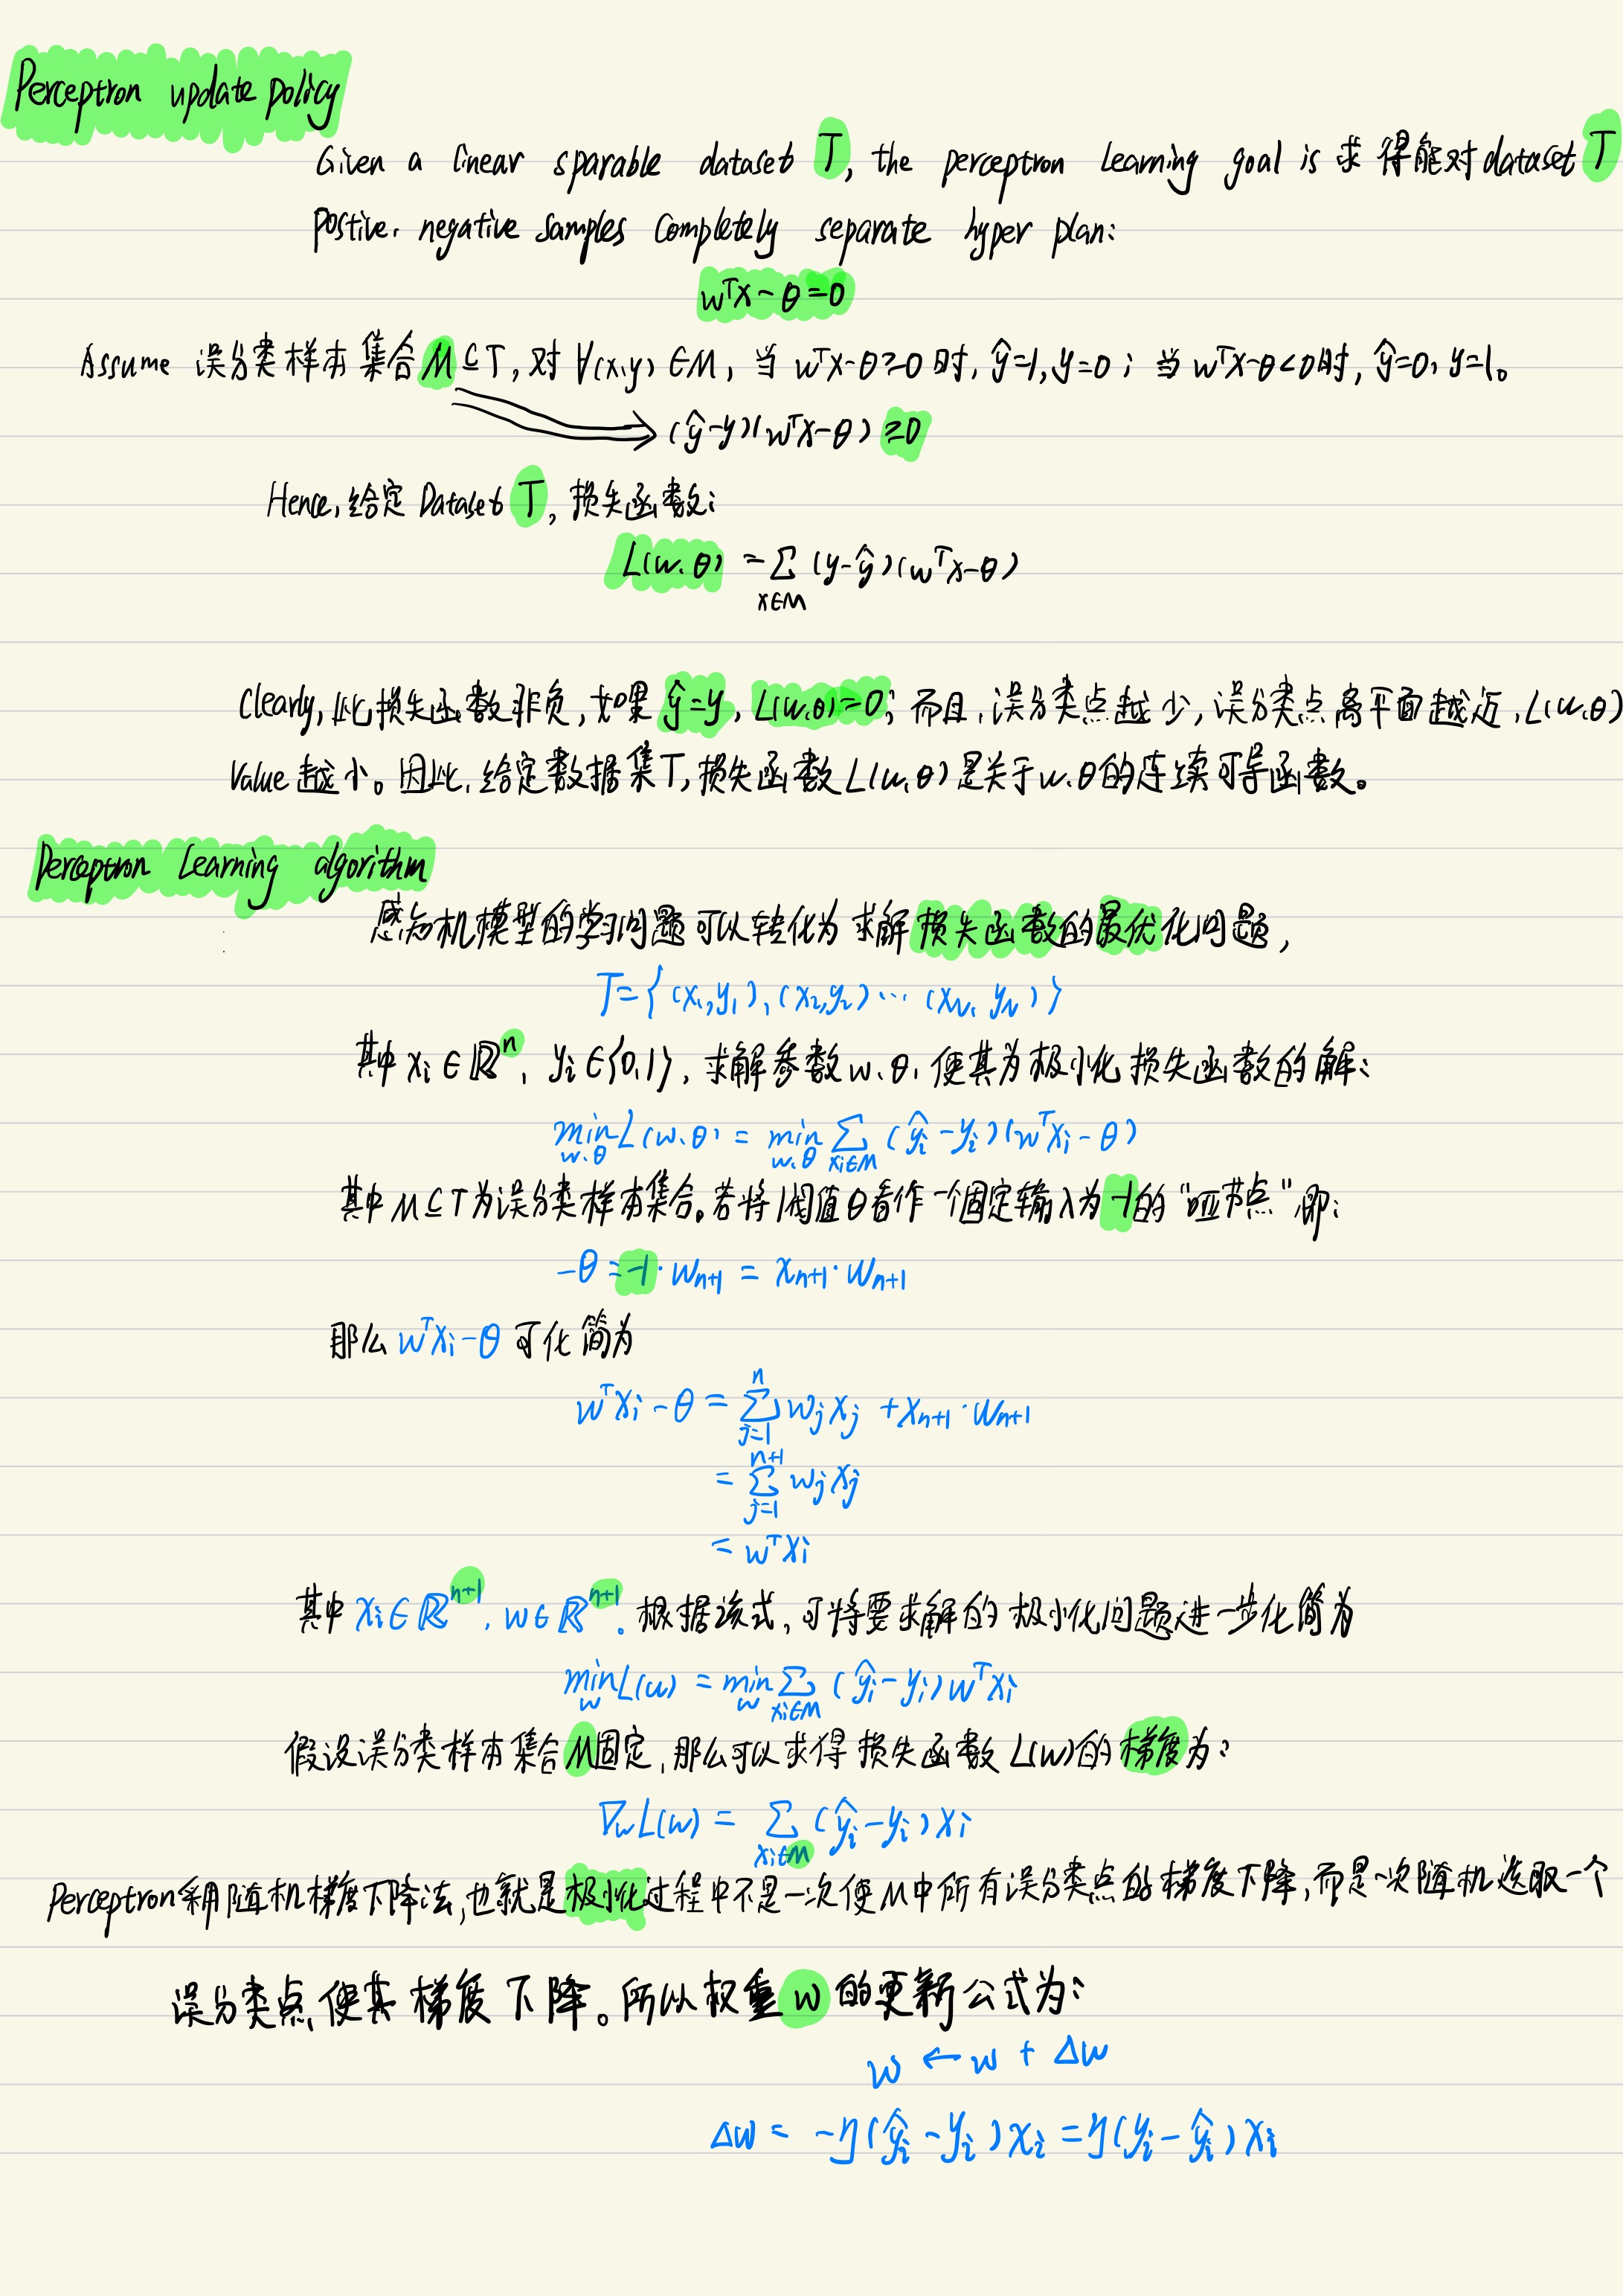 Perceptron update policy
Given a linear sparable dataset T, the perceptron Learning goal is 求得能对dataset T
Postive, negative samples Completely separate hyper plan:
wᵀx - θ = 0
Assume 误分类样本集合M⊆T, 对∀(x,y)∈M, 当wᵀx-θ≥0时, ŷ=1, y=0; 当wᵀx-θ<0时, ŷ=0, y=1。
(ŷ-y)(wᵀx-θ) ≥0
Hence, 给定 Dataset T, 损失函数:
L(w.θ) = Σ_{x∈M} (y-ŷ)(wᵀx-θ)
Clearly, 此损失函数非负, 如果 ŷ=y, L(w,θ)=0; 而且, 误分类点越少, 误分类点离平面越近, L(w,θ)
Value 越小。因此, 给定数据集T, 损失函数L(w,θ)是关于w,θ的连续可导函数。
Perceptron Learning algorithm
感知机模型的学习问题可以转化为求解损失函数的最优化问题,
T={(x₁,y₁),(x₂,y₂)⋯(x_N, y_N)}
其中 xᵢ∈ℝⁿ, yᵢ∈{0,1}, 求解参数w,θ, 使其为极小化损失函数的解:
min_{w.θ} L(w.θ) = min_{w,θ} Σ_{xᵢ∈M} (ŷᵢ-yᵢ)(wᵀxᵢ-θ)
其中M⊆T为误分类样本集合。若将阈值θ看作一个固定输入为-1的“哑节点”即:
-θ = -1·w_{n+1} = x_{n+1}·w_{n+1}
那么 wᵀxᵢ-θ 可化简为
wᵀxᵢ-θ = Σ_{j=1}^{n} wⱼxⱼ + x_{n+1}·w_{n+1}
= Σ_{j=1}^{n+1} wⱼxⱼ
= wᵀxᵢ
其中 xᵢ∈ℝⁿ⁺¹, w∈ℝⁿ⁺¹。根据该式, 可将要求解的极小化问题进一步化简为
min_w L(w) = min_w Σ_{xᵢ∈M} (ŷᵢ-yᵢ)wᵀxᵢ
假设误分类样本集合M固定, 那么可以求得损失函数L(w)的梯度为:
∇_w L(w) = Σ_{xᵢ∈M} (ŷᵢ-yᵢ)xᵢ
Perceptron采用随机梯度下降法, 也就是极小化过程中不是一次使M中所有误分类点的梯度下降, 而是一次随机选取一个
误分类点使其梯度下降。所以权重w的更新公式为:
w ← w + Δw
Δw = -η(ŷᵢ-yᵢ)xᵢ = η(yᵢ-ŷᵢ)xᵢ